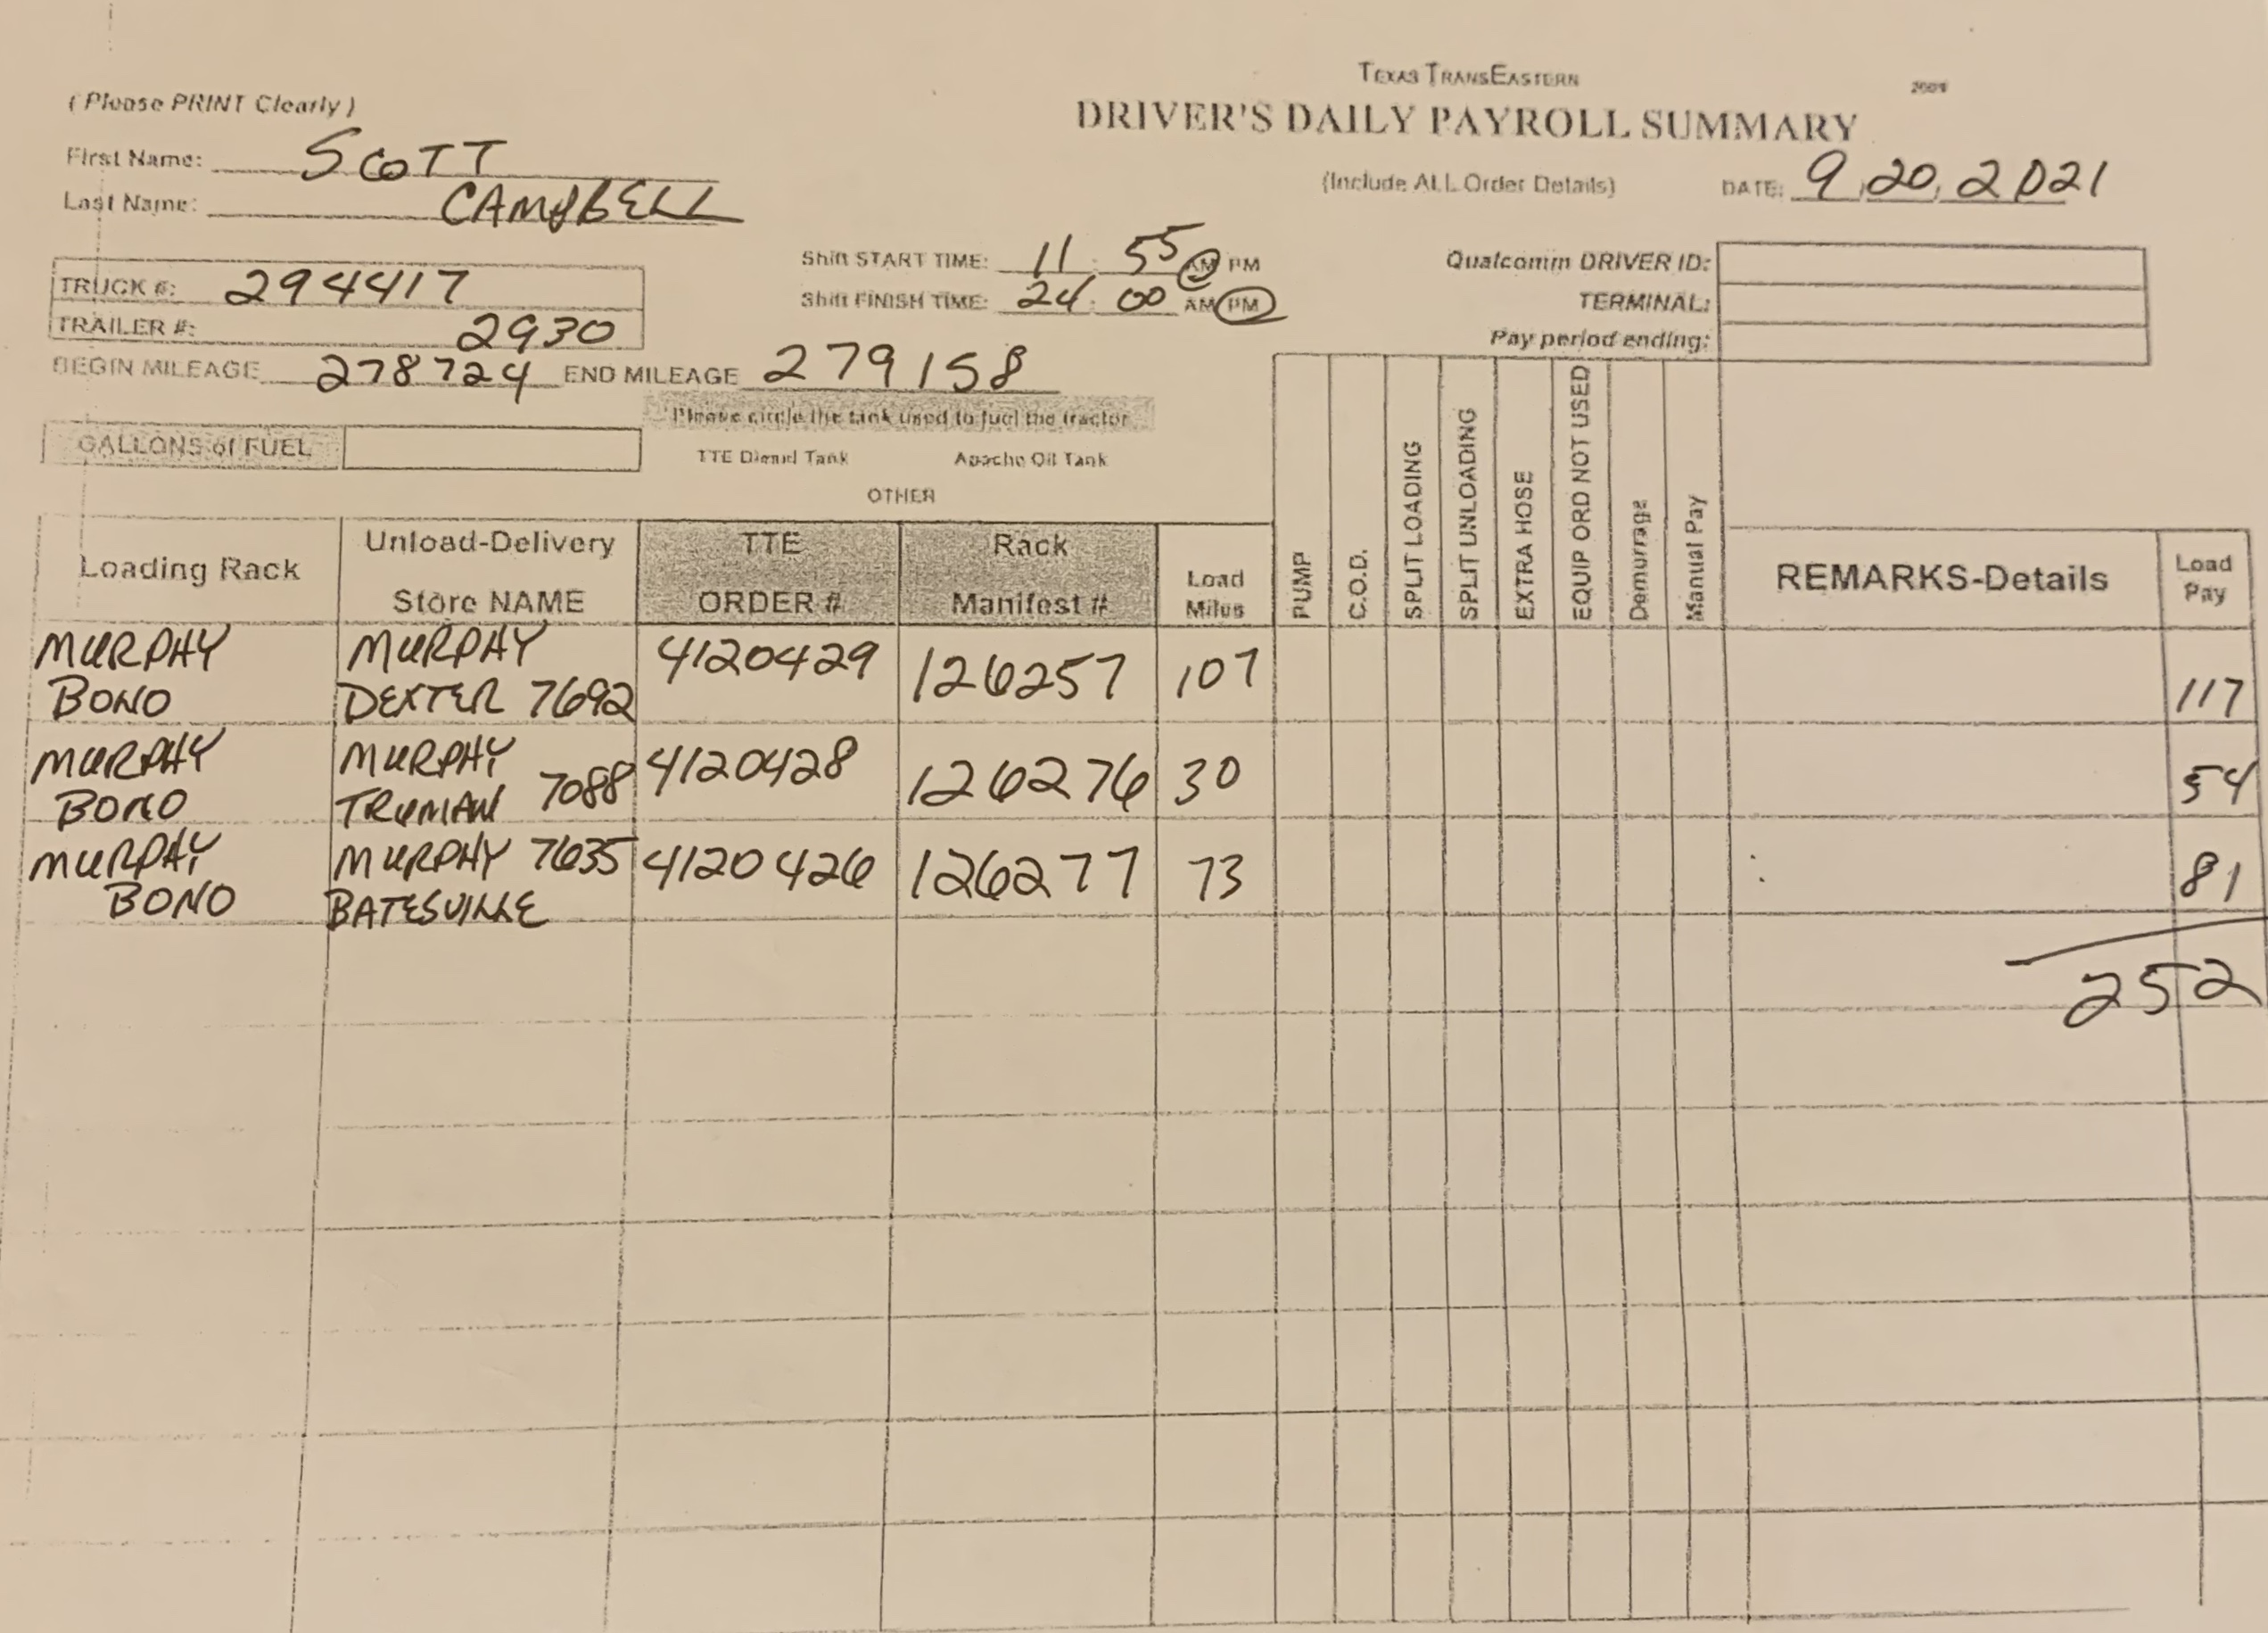 TEXAS TRANSEASTERN
2009
(Please PRINT Clearly)
DRIVER'S DAILY PAYROLL SUMMARY
First Name: SCOTT
(Include ALL Order Details)
DATE: 9, 20, 2021
Last Name: CAMPBELL
Shift START TIME: 11:55 AM PM
Qualcomm DRIVER ID:
TRUCK #: 294417
Shift FINISH TIME: 24:00 AM PM
TERMINAL:
TRAILER #: 2930
Pay period ending:
BEGIN MILEAGE 278724 END MILEAGE 279158
Please circle the tank used to fuel the tractor
GALLONS of FUEL
TTE Diesel Tank Apache Oil Tank
OTHER
Loading Rack
Unload-Delivery
Store NAME
TTE
ORDER #
Rack
Manifest #
Load
Miles
PUMP
C.O.D.
SPLIT LOADING
SPLIT UNLOADING
EXTRA HOSE
EQUIP ORD NOT USED
Demurrage
Manual Pay
REMARKS-Details
Load
Pay
MURPHY
BONO
MURPHY
DEXTER 7692
4120429
126257
107
117
MURPHY
BONO
MURPHY
TRUMAN 7088
4120428
126276
30
54
MURPHY
BONO
MURPHY 7635
BATESVILLE
4120426
126277
73
81
252